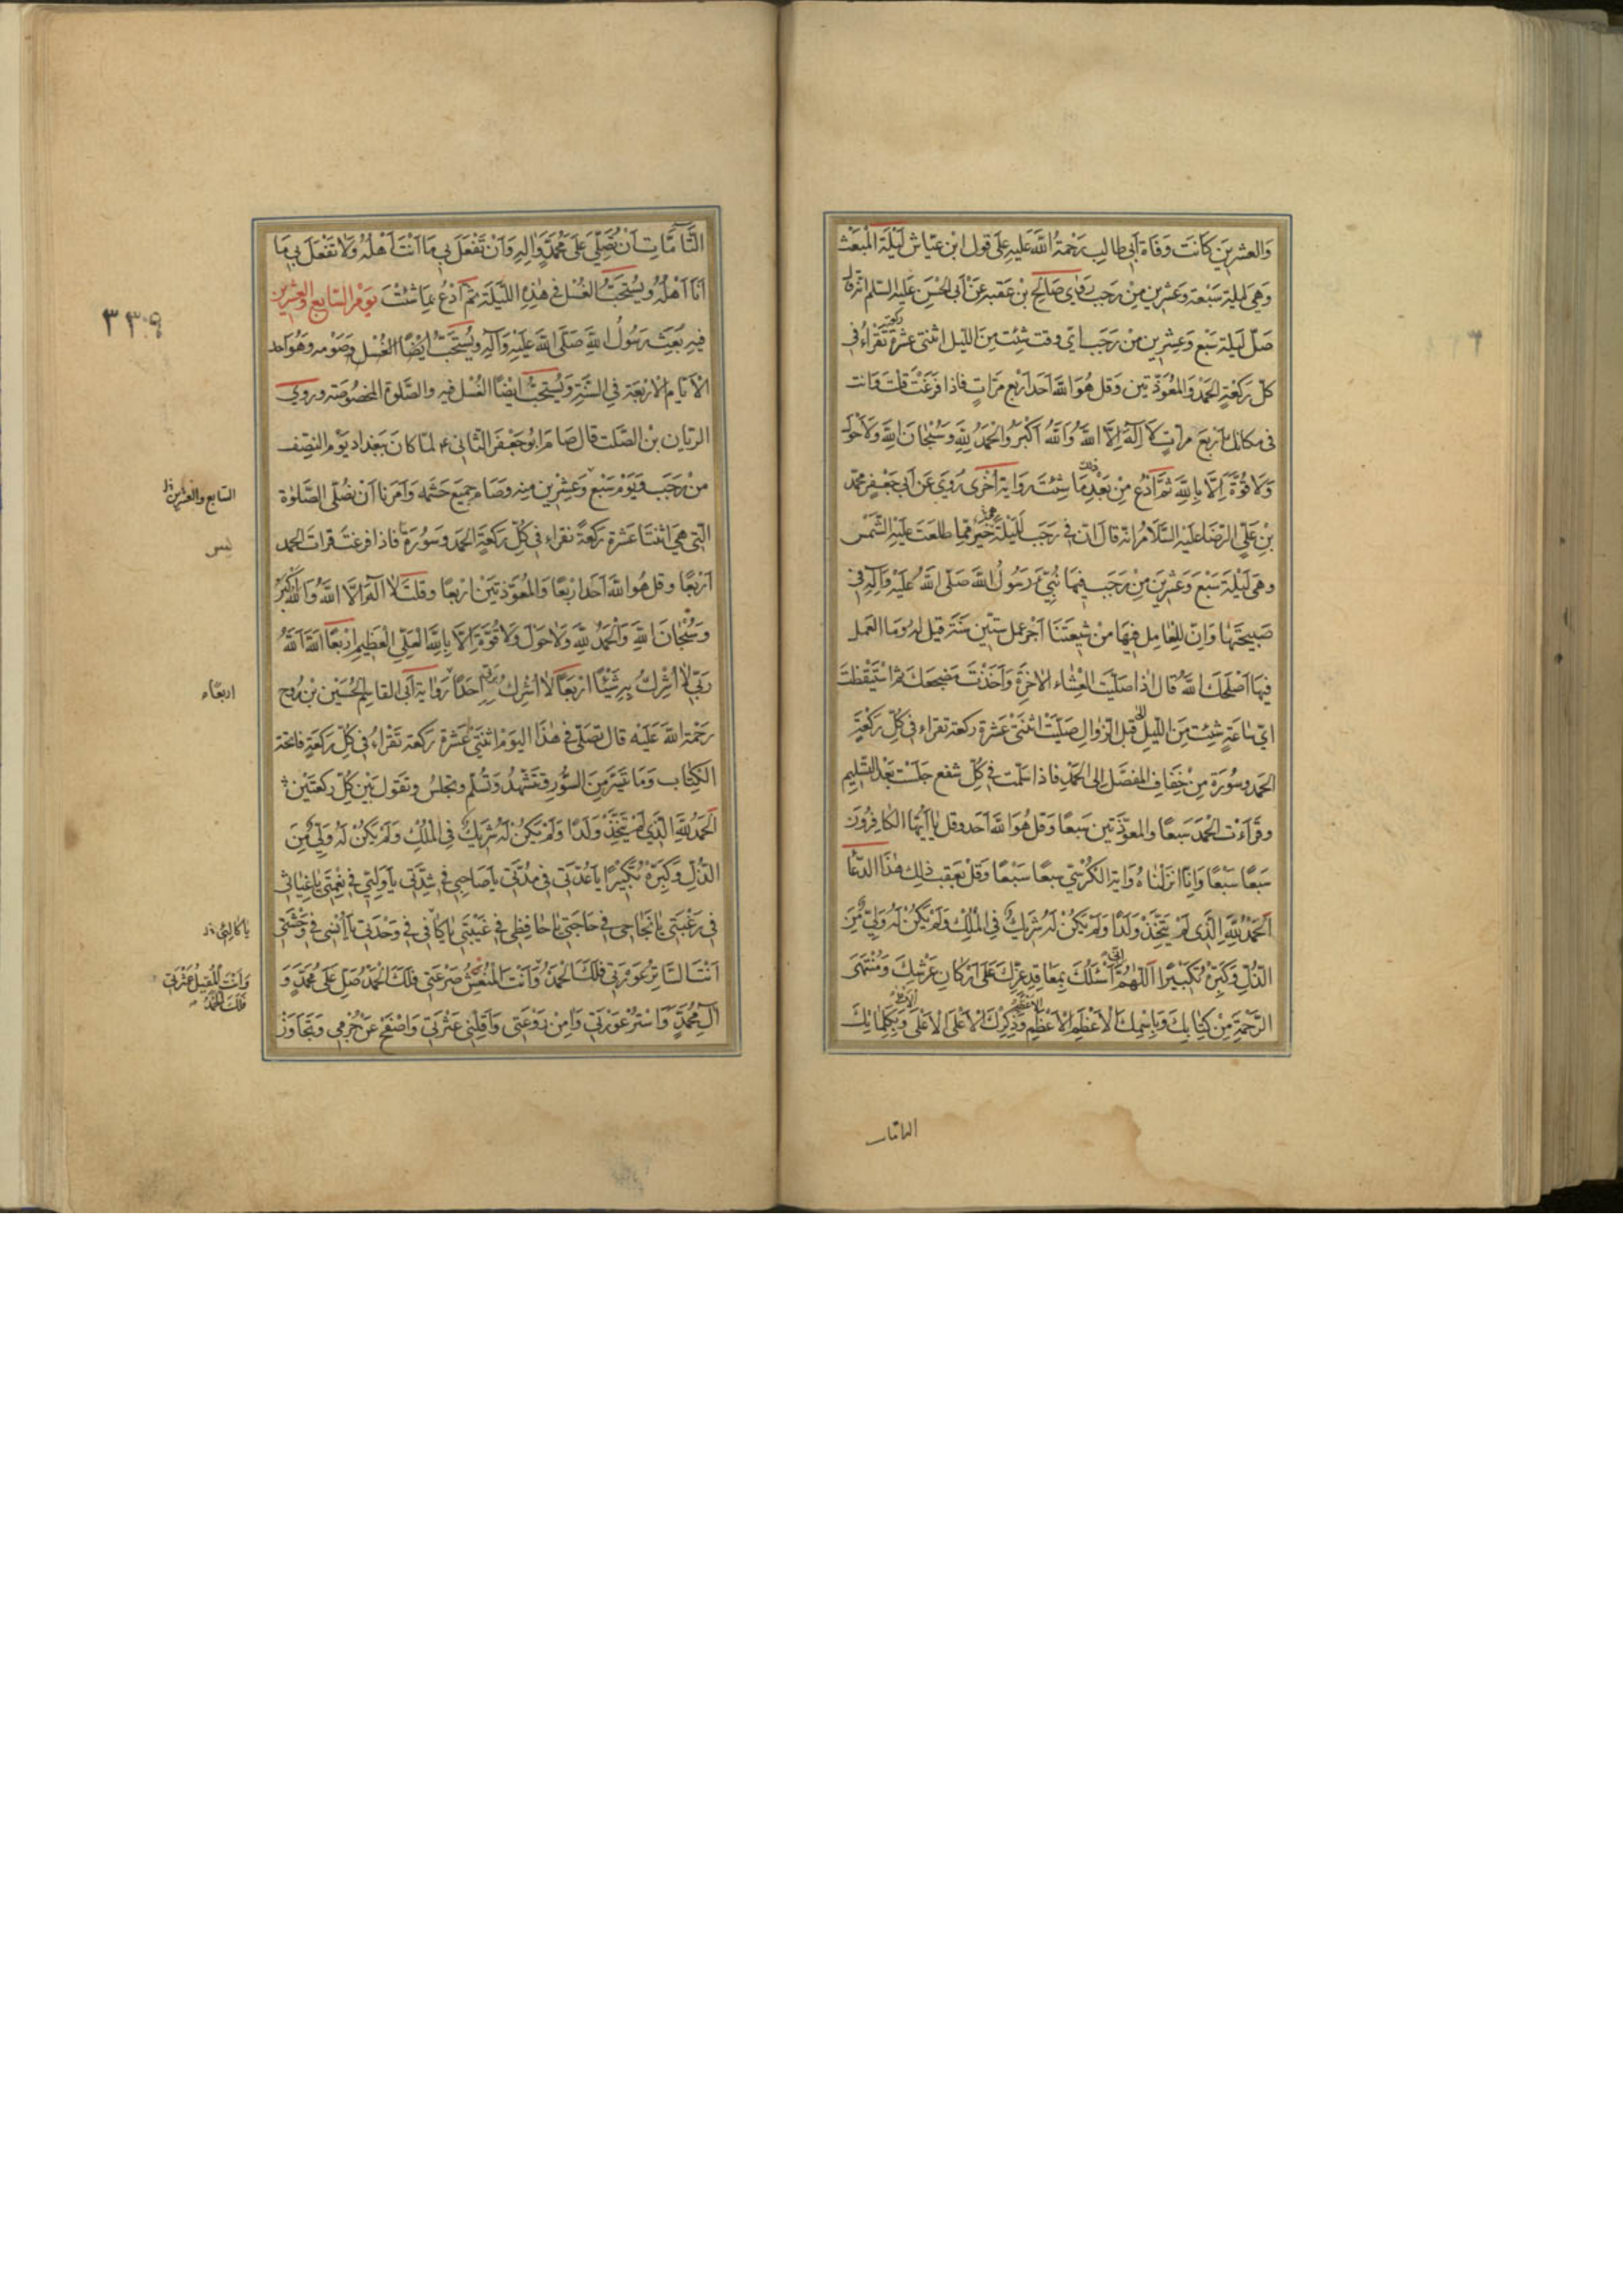 وَالعشرِينَ كَانَت وَفَاة أبي طالِب رَحْمَةُ اللَّهَ عَليهِ عَلَى قول ابْن عيّاش لَيْلَةَ المَبْعَث
وَهِيَ ليلة سَبْعَة وَعشرين مِنْ رَجَب رَوى صَالِح بْن عقبة عَنْ أبى الحَسَنِ عَلَيهِ السّلم انّه قال
صَلّ لَيلة سَبْع وَعِشرِين مِنْ رَجَب اىّ وقت شِئت مِنَ اللّيل اثنتى عشرة ركعة تَقْراءُ فى
كلّ رَكعَةٍ الحَمْدَ وَالمُعَوّذتين وَقل هُوَ اللَّه اَحَد اَربع مَرّاتٍ فاذا فَرَغْتَ قلتَ وَانت
فى مكانِك اَرْبَعَ مرّاتٍ لا اِلهَ اِلاَّ اللَّهُ وَاللَّهُ اَكْبَرُ وَالْحَمْدُ لِلّهِ وَسُبْحانَ اللَّهِ وَلا حَوْلَ
وَلا قُوَّةَ اِلاَّ بِاللَّهِ ثُمَّ ادْعُ مِنْ بَعْدِ ذلك مَا شِئْتَ رِوَاية اُخْرى رُوِىَ عَن اَبي جَعْفرٍ محمّد
بْنِ عَلىّ الرّضَا عليْهِ السَّلامُ انّه قال انّ فى رَجَب لَلَيْلَةً خَيْرٌ ممّا طلعَت عَلَيْهِ الشَّمس
وَهىَ لَيْلَة سَبْعَ وَعشرِينَ مِنْ رَجَب فيهَا نُبِّئَ رَسُولُ اللَّهُ صَلّى اللَّهُ عَلَيْهِ وَآلِهِ فى
صَبيحَتِهَا وَاِنّ لِلْعَامِلِ فِيهَا مِنْ شِيعَتِنَا اَجْر عَمل ستّين سَنَة قيل لهُ وَما العَمل
فيهَا اَصْلَحَكَ اللَّهُ قال اذا صَلّيْتَ العِشاء الآخِرَةَ وَاَخَذتَ مَضجعَكَ ثمّ اسْتَيْقَظْتَ
اىّ سَاعَةٍ شِئتَ مِنَ اللّيلِ قبلَ الزّوال صَلّيْتَ اثنَتَىْ عَشْرة ركعة تقراء فى كلّ رَكْعَةٍ
الحَمْدَ وَسُورَة مِنْ خِفَافِ المفصّلِ الى الحَمْدِ فاذا سَلّمت فى كلّ شفعٍ جَلَسْتَ بَعْدَ التّسليم
وَقَراءت الْحَمْدَ سَبْعًا والمعوّذتين سَبعًا وَقل هُوَ اللَّه اَحَد وقل يا اَيّهَا الكافِرُونَ
سَبعًا سَبْعًا وَاِنّا اَنْزَلناهُ وَايَة الكرْسِىّ سبعًا سَبْعًا وَقلْ بعَقِب ذلك هذا الدّعا
اَلحَمْدُ للّهِ الَّذى لَمْ يَتَّخِذْ وَلَدًا وَلَمْ يَكُنْ لَهُ شَرِيكٌ فِى الْمُلْكِ وَلَمْ يَكُنْ لَهُ وَلِىٌّ مِنَ
الذُّلِّ وَكَبِّرْهُ تَكْبيرًا اَللّهُمَّ اِنّى اَسْئَلُكَ بِمَعَاقِدِ عِزِّكَ عَلى اَرْكانِ عَرْشِكَ وَمُنْتَهَى
الرَّحْمَةِ مِنْ كِتابِكَ وَبِاسْمِكَ الاَعْظَمِ الاَعْظَمِ الاعظم وَذِكْرِكَ الاَعْلَى الاَعْلَى الاعلى وَبِكَلِماتِكَ
التامّات
التَّامَّاتِ اَنْ تُصَلِّىَ عَلى مُحَمَّدٍ وَآلِهِ وَاَنْ تَفْعَلَ بى مَا اَنْتَ اَهْلُهُ وَلا تَفْعَلَ بى مَا
اَنَا اَهْلُهُ وَيُسْتَحَبُّ الغُسْل فى هٰذِهِ اللَّيْلَة ثمّ ادْعُ بِمَا شئْتَ يَوْم السّابع والعِشْرين
٣٣٩
فيهِ بُعِثَ رَسُولُ اللَّهِ صَلَّى اللَّهَ عَلَيْهِ وَآلِهِ وَيُسْتَحَبّ اَيضًا الغُسْل وَصَوْمه وَهُوَ احد
الاَيّام الاَرْبَعَة فِى السَّنَةِ وَيُسْتَحَبّ اَيْضًا الغُسْل فيهِ والصَّلوة المخصُوصَة وروى
الريّان بْن الصَّلت قال صَامَ اَبُو جَعْفَر الثّانى ع لمّا كانَ بِبَغداد يَوْم النصِف
مِنْ رَجَب وَيَوْم سَبْع وَعِشرين منه وصَامَ جميع حَشَمه وَاَمَرَنا اَنْ نُصَلّى الصَّلوٰة
السّابع والعشرين
الّتى هىَ اثْنَتَا عَشَرة رَكعَةً نقراء فى كلّ ركعَةٍ الحَمد وَسُورَة فاذا فرغتَ قراتَ الحمد
يس
اَرْبعًا وقل هُوَ اللَّه اَحَد اَرْبعًا وَالمُعَوّذتين اَرْبعًا وقلت لا اله اِلاَّ اللَّهُ وَاللَّهُ اَكْبَرُ
وَسُبْحانَ اللَّهِ وَالْحَمْدُ لِلَّهِ وَلا حَوْلَ وَلا قُوَّةَ اِلاَّ بِاللَّهِ العَلِىِّ العَظِيمِ اَرْبعًا اللَّهُ اللَّهُ
رَبّى لا اُشْرِكُ بِهِ شَيْئًا اَرْبَعًا لا اُشْرِكُ بِرَبّى اَحَدًا رِوَايَة اَبى القاسِم الحُسَيْن بْن رُوح
اربعًاء
رَحْمَة اللَّهَ عَلَيْه قال تصَلّى فى هٰذا اليَوْم اثنَتَىْ عَشْرة رَكعَة تَقْراءُ فى كلِّ رَكعَةٍ فاتحَة
الكِتَاب وَمَا تَيَسَّرَ مِنَ السُّوَرِ وَتَشَهَّدُ وَتُسَلِّم وَتَجْلِسُ وَتَقول بَيْنَ كلّ رَكعَتَيْن
اَلحَمْدُ لِلّهِ الَّذِى لَمْ يَتَّخِذْ وَلَدًا وَلَمْ يَكُنْ لَهُ شَرِيكٌ فِى المُلْكِ وَلَمْ يَكُنْ لَهُ وَلِىٌّ مِنَ
الذُّلِّ وَكَبِّرْهُ تَكْبِيرًا يا عُدَّتى فى مُدَّتى يا صَاحِبى فى شِدَّتى يا وَلِيّى فى نِعْمَتى يا غِياثى
فى رَغْبَتى يا نَجَاحى فى حَاجَتى يا حَافِظى فى غَيْبَتى يا كافِىَّ فى وَحْدَتى يا اُنْسى فى وَحْشَتى
يا كالِئى
اَنْتَ السَّاتِرُ عَوْرَتى فَلَكَ الْحَمْدُ وَاَنْتَ الْمُنْعِشُ صَرْعَتى فَلَكَ الْحَمْدُ صَلِّ عَلى مُحَمَّدٍ وَ
وَاَنْتَ الْمُقِيلُ عَثْرَتى
فَلَكَ الْحَمْدُ
آلِ مُحَمَّدٍ وَاسْتُرْ عَوْرَتى وَامِنْ رَوْعَتى وَاَقِلْنى عَثْرَتى وَاصْفَحْ عَنْ جُرْمى وَتَجَاوَزْ